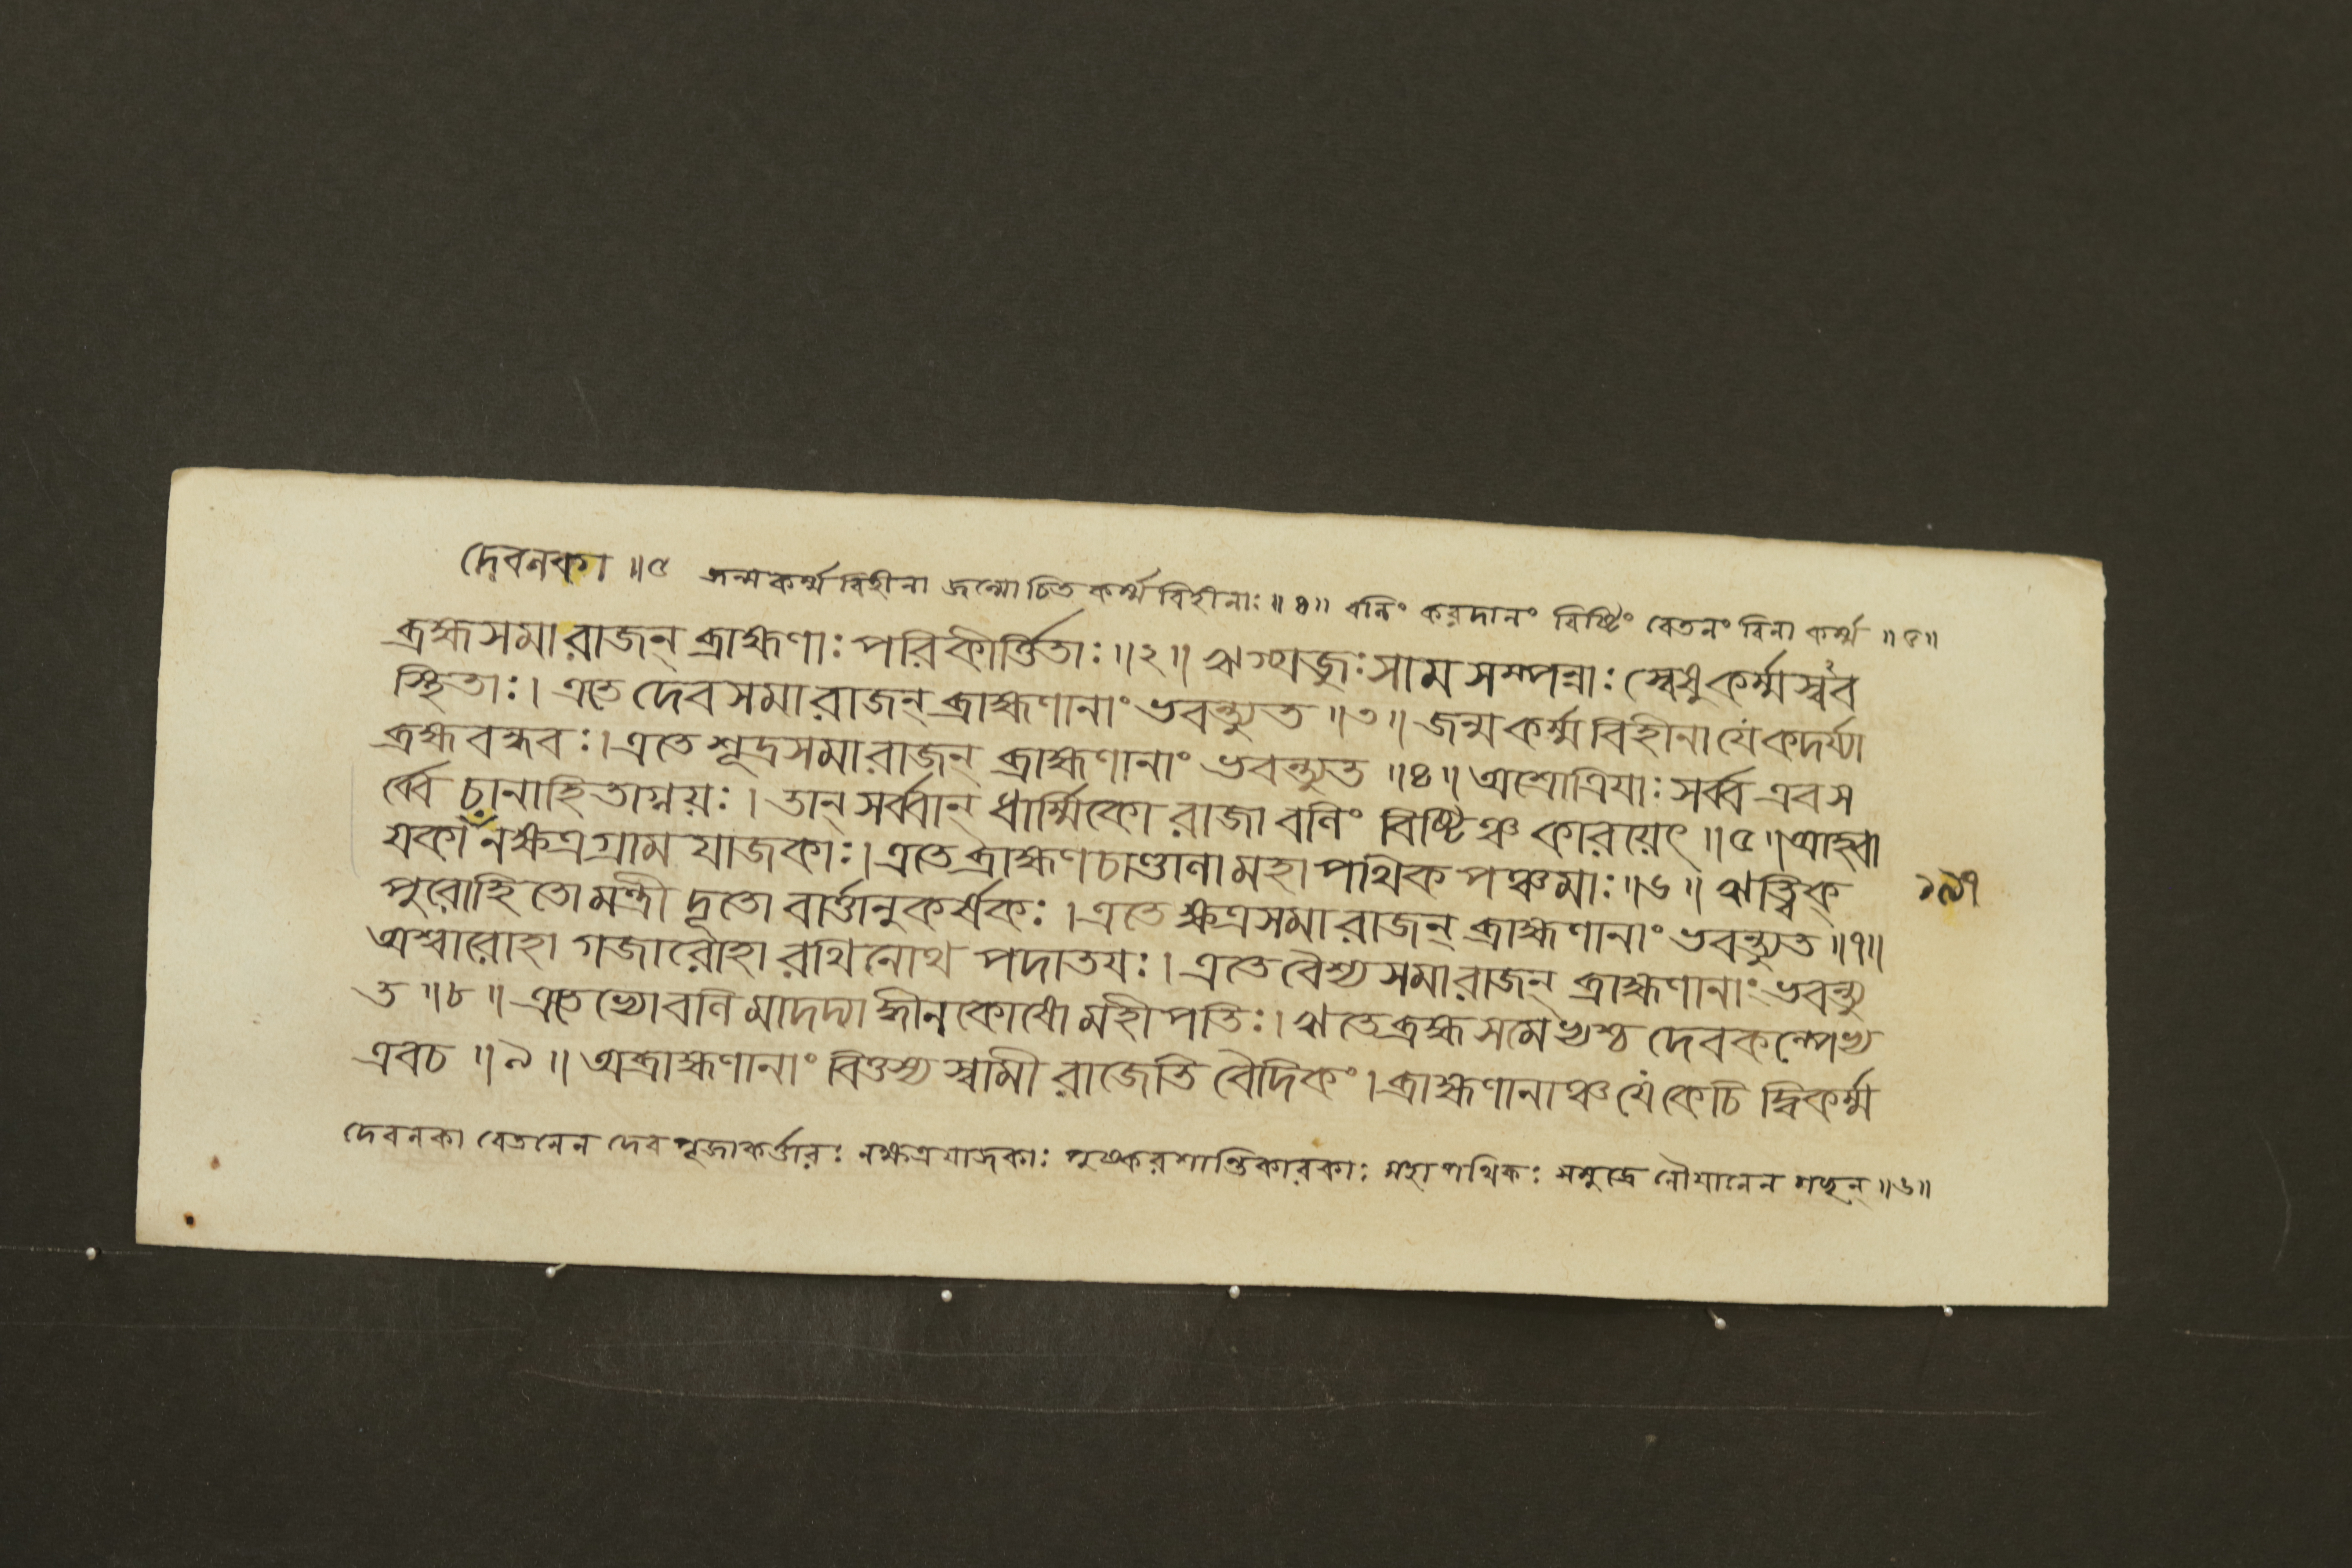 দেবনকা ॥৫ জন্মকর্ম্মবিহীনা জন্মোচিতকর্ম্মবিহীনাঃ ॥৪॥ বলিং করদানং বিষ্টিং বেতনং বিনা কর্ম্ম ॥৫॥
ব্রহ্মসমা রাজন্ ব্রাহ্মণাঃ পরিকীর্ত্তিতাঃ ॥২॥ ঋগ্যজুঃসামসম্পন্নাঃ স্বেষু কর্ম্মস্বব
স্থিতাঃ। এতে দেবসমা রাজন্ ব্রাহ্মণানাং ভবন্ত্যুত ॥৩॥ জন্মকর্ম্মবিহীনা যে কদর্য্যা
ব্রহ্মবন্ধবঃ। এতে শূদ্রসমা রাজন্ ব্রাহ্মণানাং ভবন্ত্যুত ॥৪॥ অশ্রোত্রিয়াঃ সর্ব্ব এব স
র্ব্বে চানাহিতাগ্নয়ঃ। তান্ সর্ব্বান্ ধার্ম্মিকো রাজা বলিং বিষ্টিঞ্চ কারয়েৎ ॥৫॥ আহ্বা
য়কা নক্ষত্রগ্রামযাজকাঃ। এতে ব্রাহ্মণচাণ্ডালা মহাপথিকপঞ্চমাঃ ॥৬॥ ঋত্বিক্ ১৯৭
পুরোহিতো মন্ত্রী দূতো বার্ত্তানুকর্শকঃ। এতে ক্ষত্রসমা রাজন্ ব্রাহ্মণানাং ভবন্ত্যুত ॥৭॥
অশ্বারোহা গজারোহা রথিনোথ পদাতয়ঃ। এতে বৈশ্যসমা রাজন্ ব্রাহ্মণানাং ভবন্ত্যু
ত ॥৮॥ এতেভ্যো বলিমাদদ্যাদ্ধীনকোষো মহীপতিঃ। ঋতে ব্রহ্মসমেভ্যশ্চ দেবকল্পেভ্য
এব চ ॥৯॥ অব্রাহ্মণানাং বিত্তস্য স্বামী রাজেতি বৈদিকং। ব্রাহ্মণানাঞ্চ যে কেচিদ্বিকর্ম্ম
দেবলকা বেতনেন দেবপূজাকর্ত্তারঃ নক্ষত্রযাজকাঃ পুষ্করশান্তিকারকাঃ মহাপথিকঃ সমুদ্রে নৌযানেন গচ্ছন্ ॥৬॥